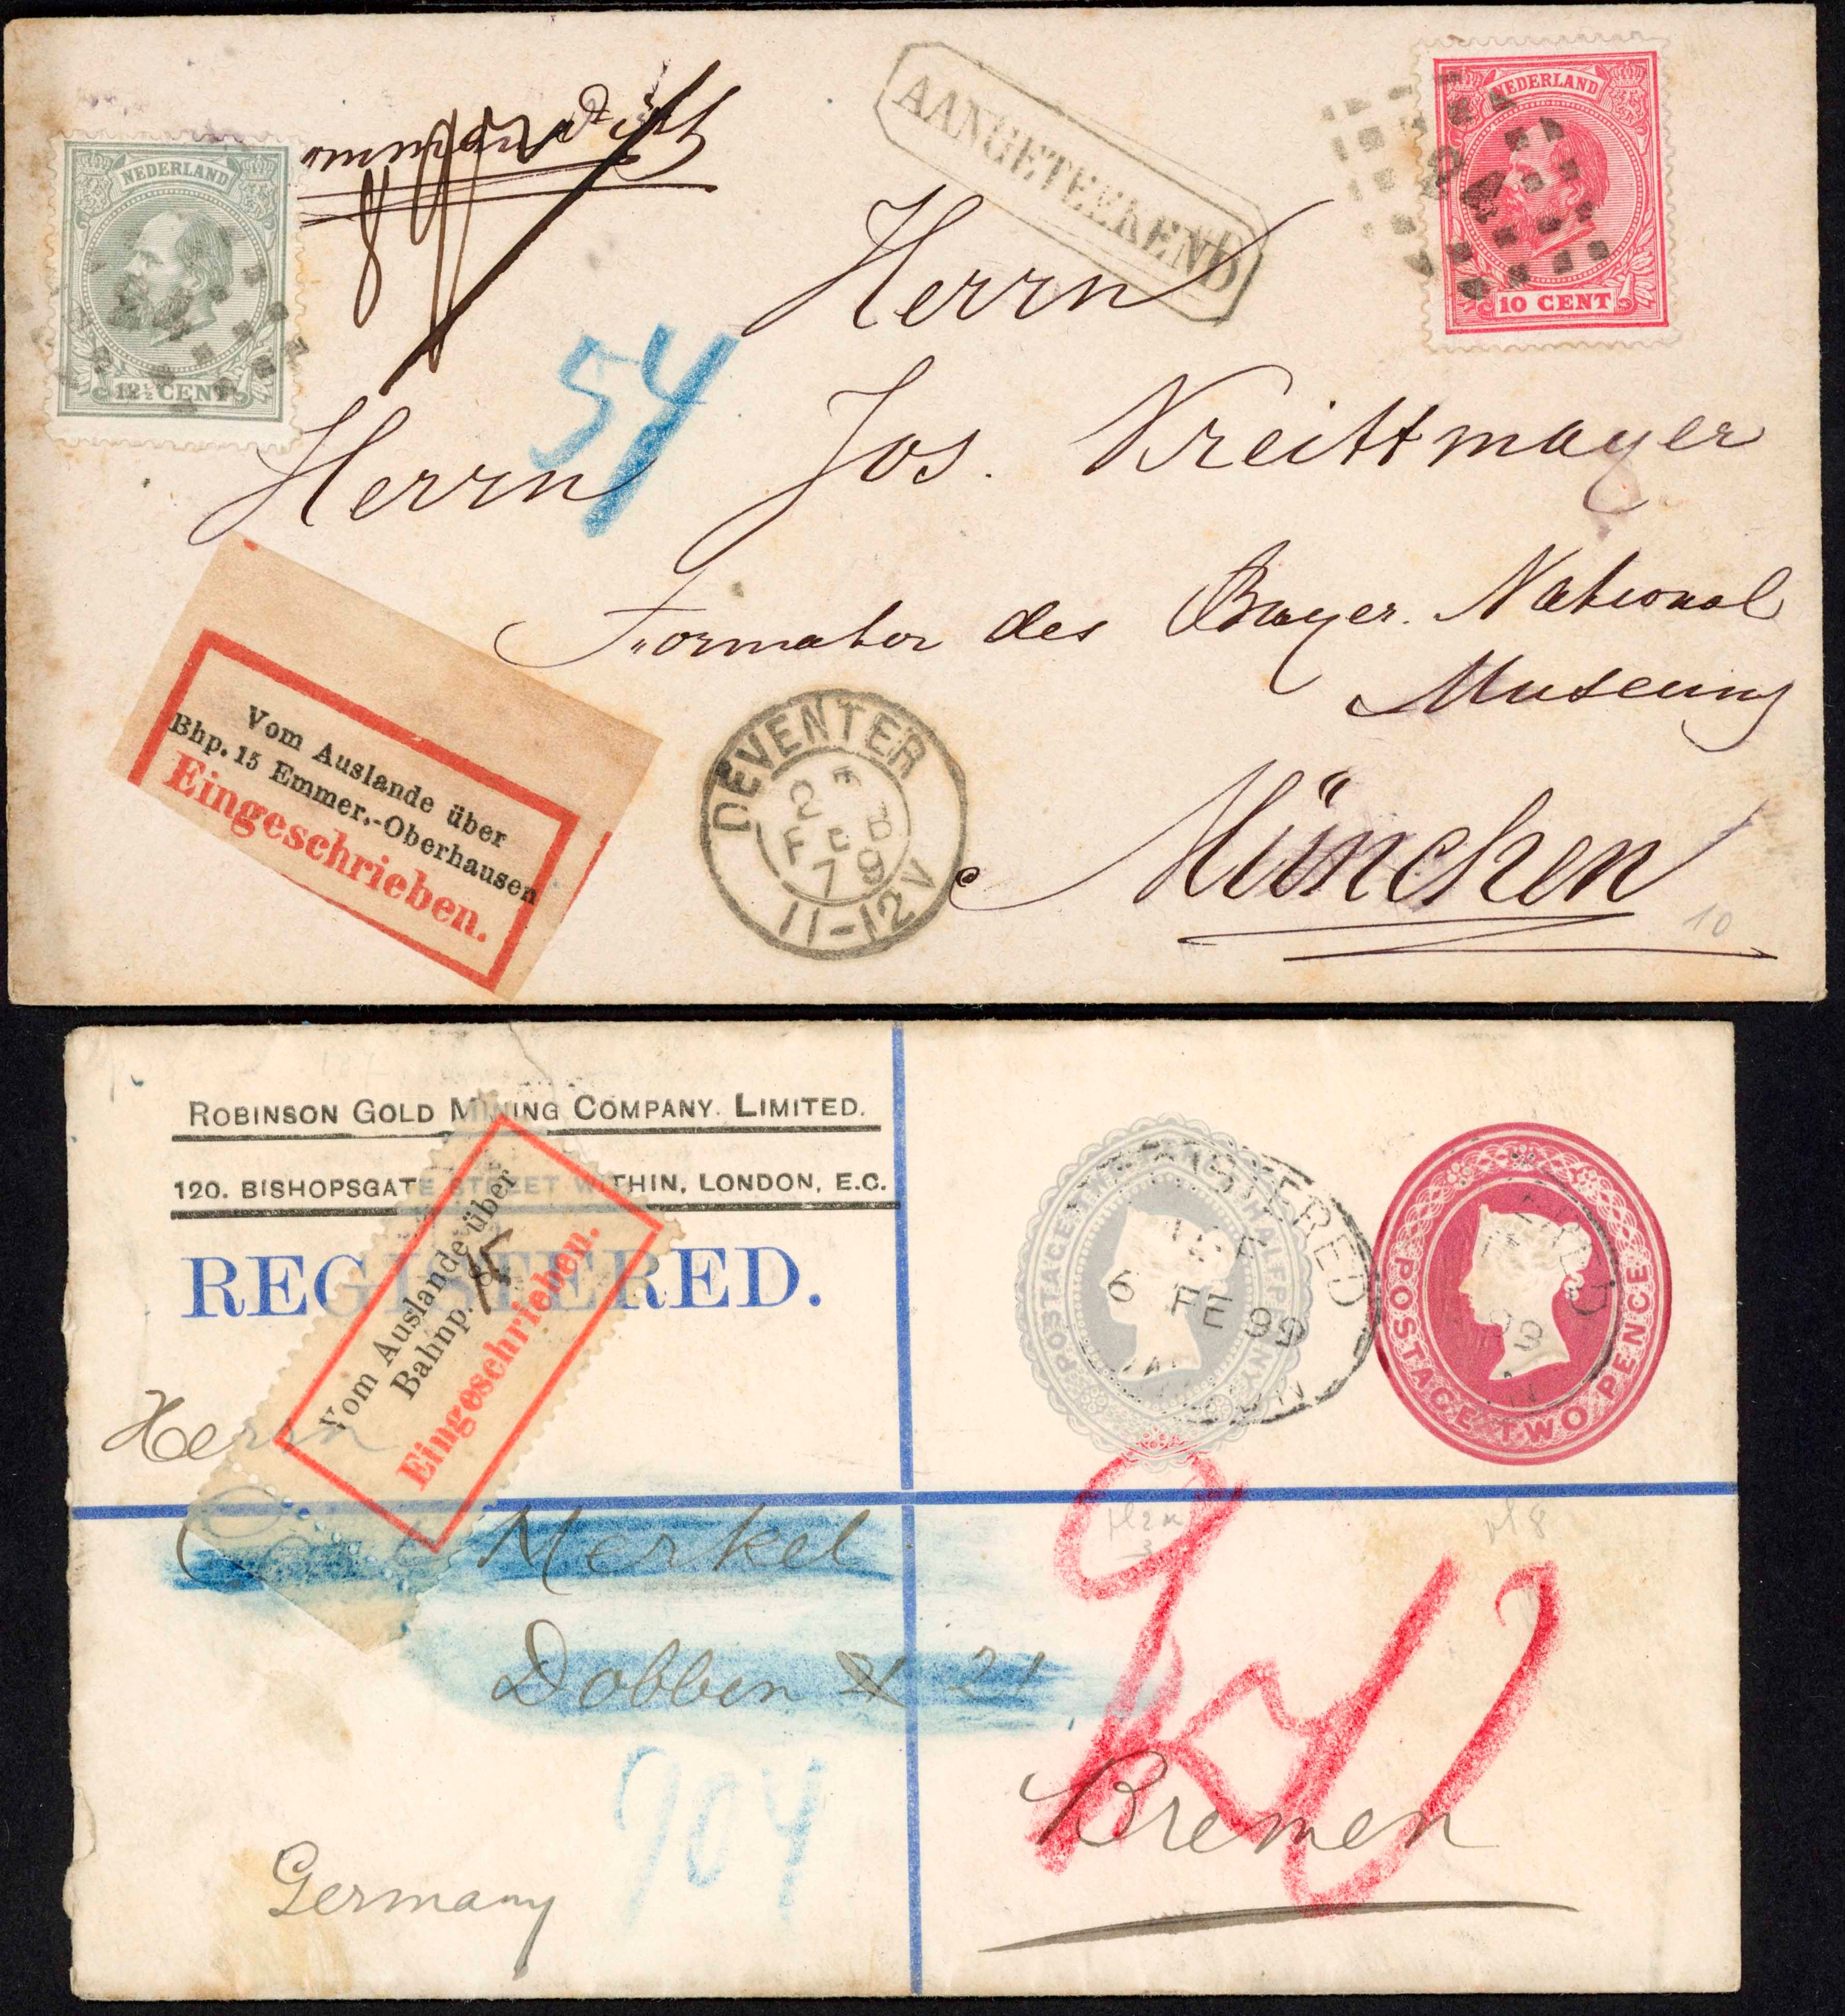 NEDERLAND
12½ CENT
AANGETEEKEND
NEDERLAND
10 CENT
Herrn
54
Herrn Jos. Kreittmayer
Formator des Bayer. National
Museums
München
10
Vom Auslande über
Bhp. 15 Emmer.-Oberhausen
Eingeschrieben.
DEVENTER
2 FEB
79
11-12V
ROBINSON GOLD MINING COMPANY. LIMITED.
120. BISHOPSGATE STREET WITHIN, LONDON, E.C.
REGISTERED.
Vom Auslande über
Bahnp.
Eingeschrieben.
POSTAGE TWO PENCE HALFPENNY
REGISTERED
6 FE 99
POSTAGE TWO PENCE
Herrn
Merkel
Dobben 21
904
Bremen
Germany